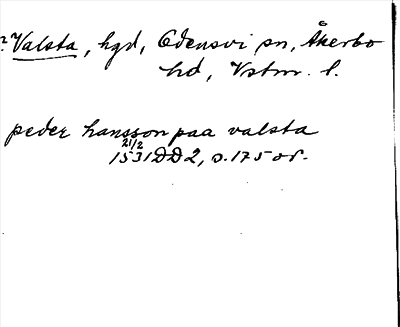 ? Valsta, hgd, Odensvi sn, Åkerbo
hd, Vstm. l.
peder hansson paa valsta
21/2
1531 DD 2, s. 175 or.